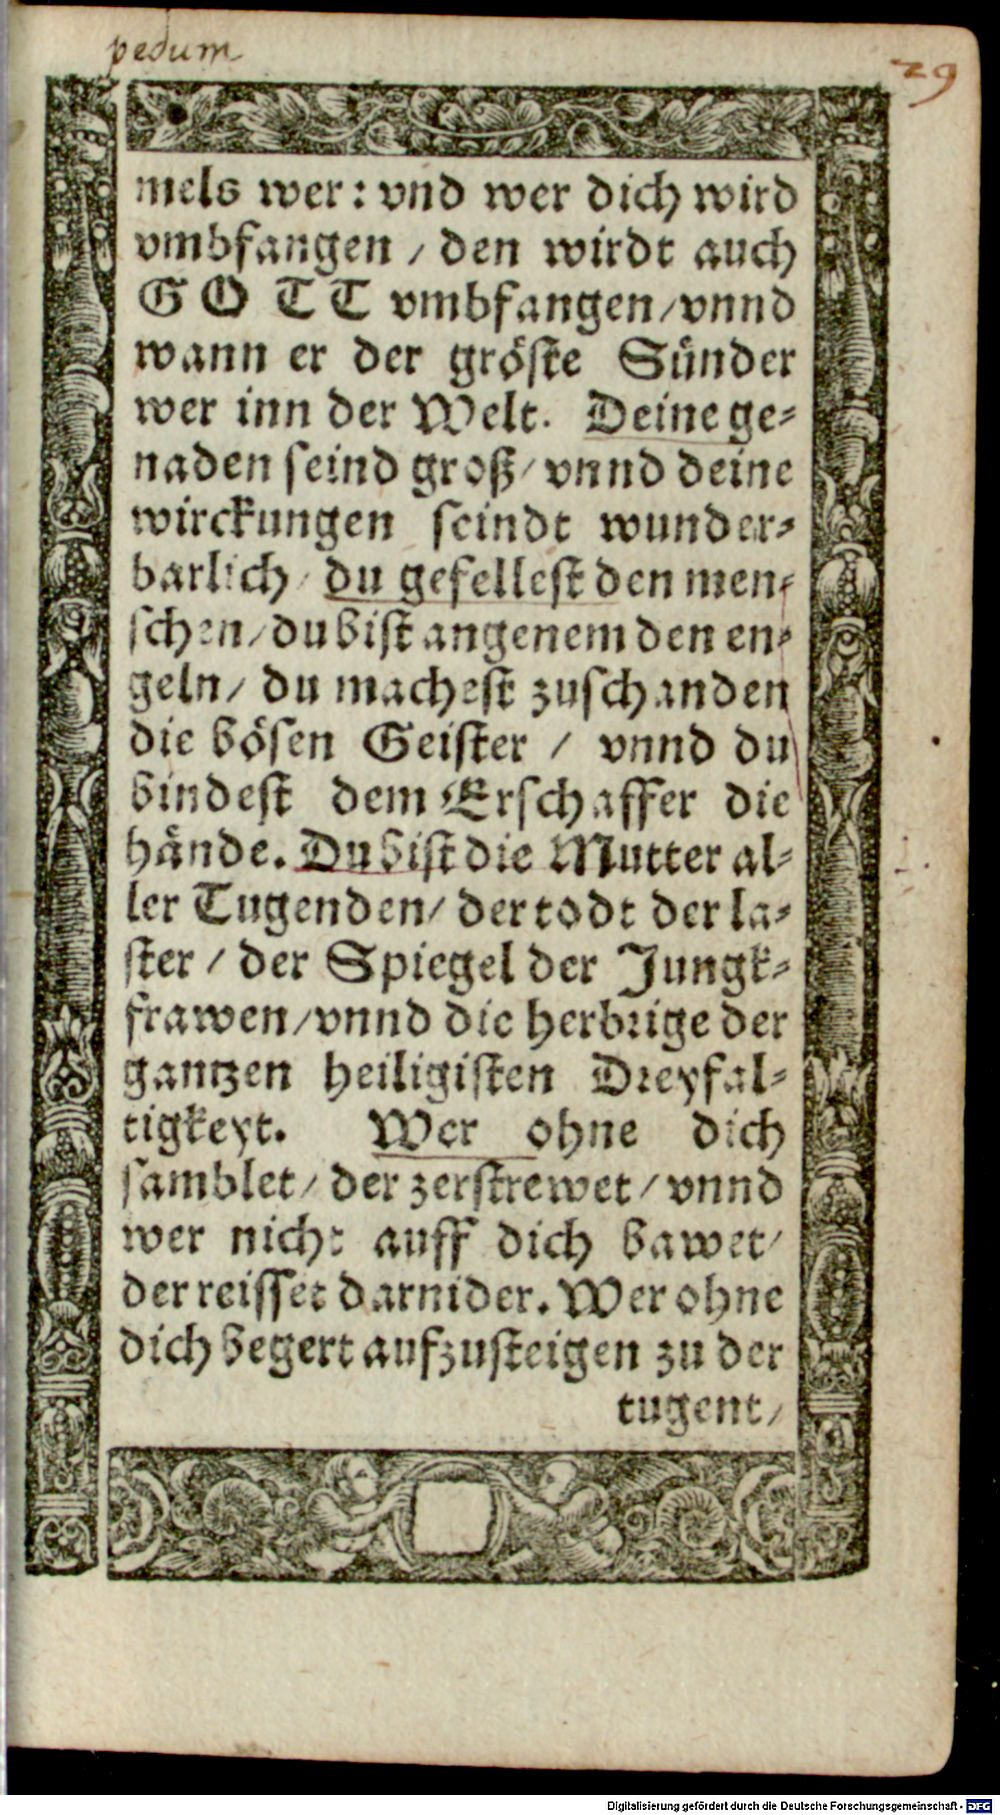 pedum
29
mels wer: vnd wer dich wird
vmbfangen / den wirdt auch
GOTT vmbfangen / vnnd
wann er der gröste Sünder
wer inn der Welt. Deine ge⸗
naden seind groß / vnnd deine
wirckungen seindt wunder⸗
barlich / du gefellest den men⸗
schen / du bist angenem den en⸗
geln / du machest zuschanden
die bösen Geister / vnnd du
bindest dem Erschaffer die
hände. Du bist die Mutter al⸗
ler Tugenden / der todt der la⸗
ster / der Spiegel der Jungk⸗
frawen / vnnd die herbrige der
gantzen heiligisten Dreyfal⸗
tigkeyt. Wer ohne dich
samblet / der zerstrewet / vnnd
wer nicht auff dich bawet /
der reisset darnider. Wer ohne
dich begert aufzusteigen zu der
tugent /
Digitalisierung gefördert durch die Deutsche Forschungsgemeinschaft - DFG